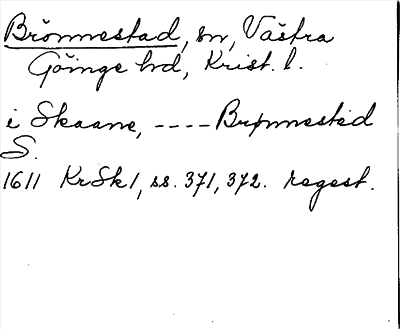 Brönnestad, sn, Västra
Göinge hd, Krist. l.
i Skaane, ---- Brønnestad
S.
1611 KrSk 1, ss. 371, 372. regest.